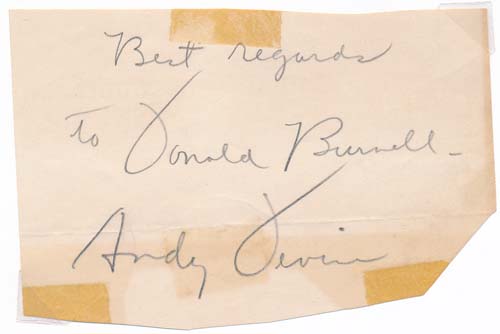 Best regards
to Donald Burnell -
Andy Devine